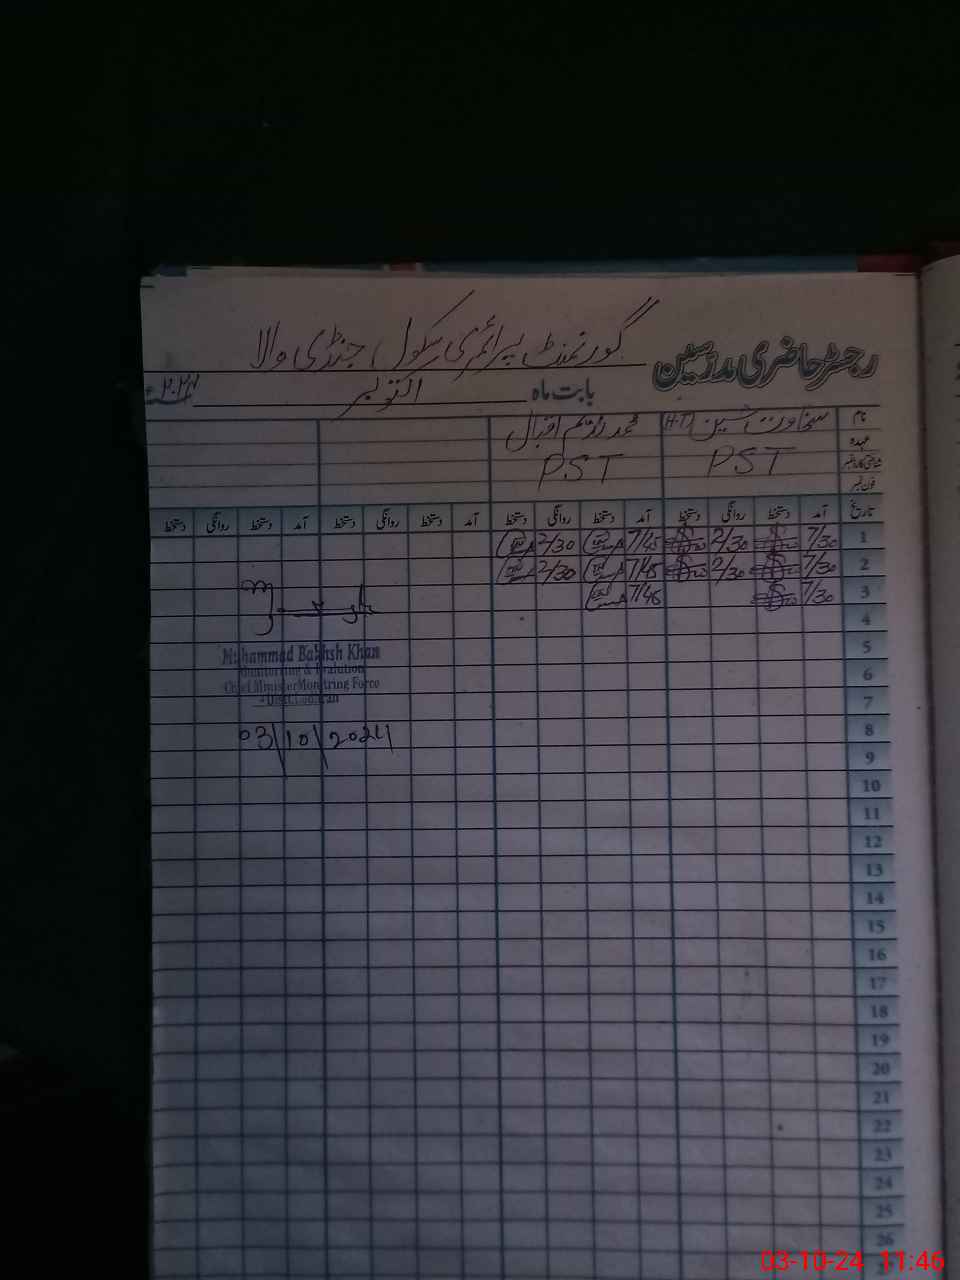 گورنمنٹ پرائمری سکول جنڈی والا
رجسٹر حاضری مدرسین
بابت ماہ اکتوبر ۲۰۲۴ء
نام سخاوت حسین (H.T) محمد ندیم اقبال
عہدہ PST PST
شناختی کارڈ نمبر
فون نمبر
تاریخ آمد دستخط روانگی دستخط آمد دستخط روانگی دستخط آمد دستخط روانگی دستخط آمد دستخط روانگی دستخط
1 7/30 2/30 7/45 2/30
2 7/30 2/30 7/45 2/30
3 7/30 7/45
4
5
6
7
8
9
10
11
12
13
14
15
16
17
18
19
20
21
22
23
24
25
26
Muhammad Bakhsh Khan
Monitoring & Evalution
Chief Minister Monitring Force
03/10/2024
03-10-24 11:46